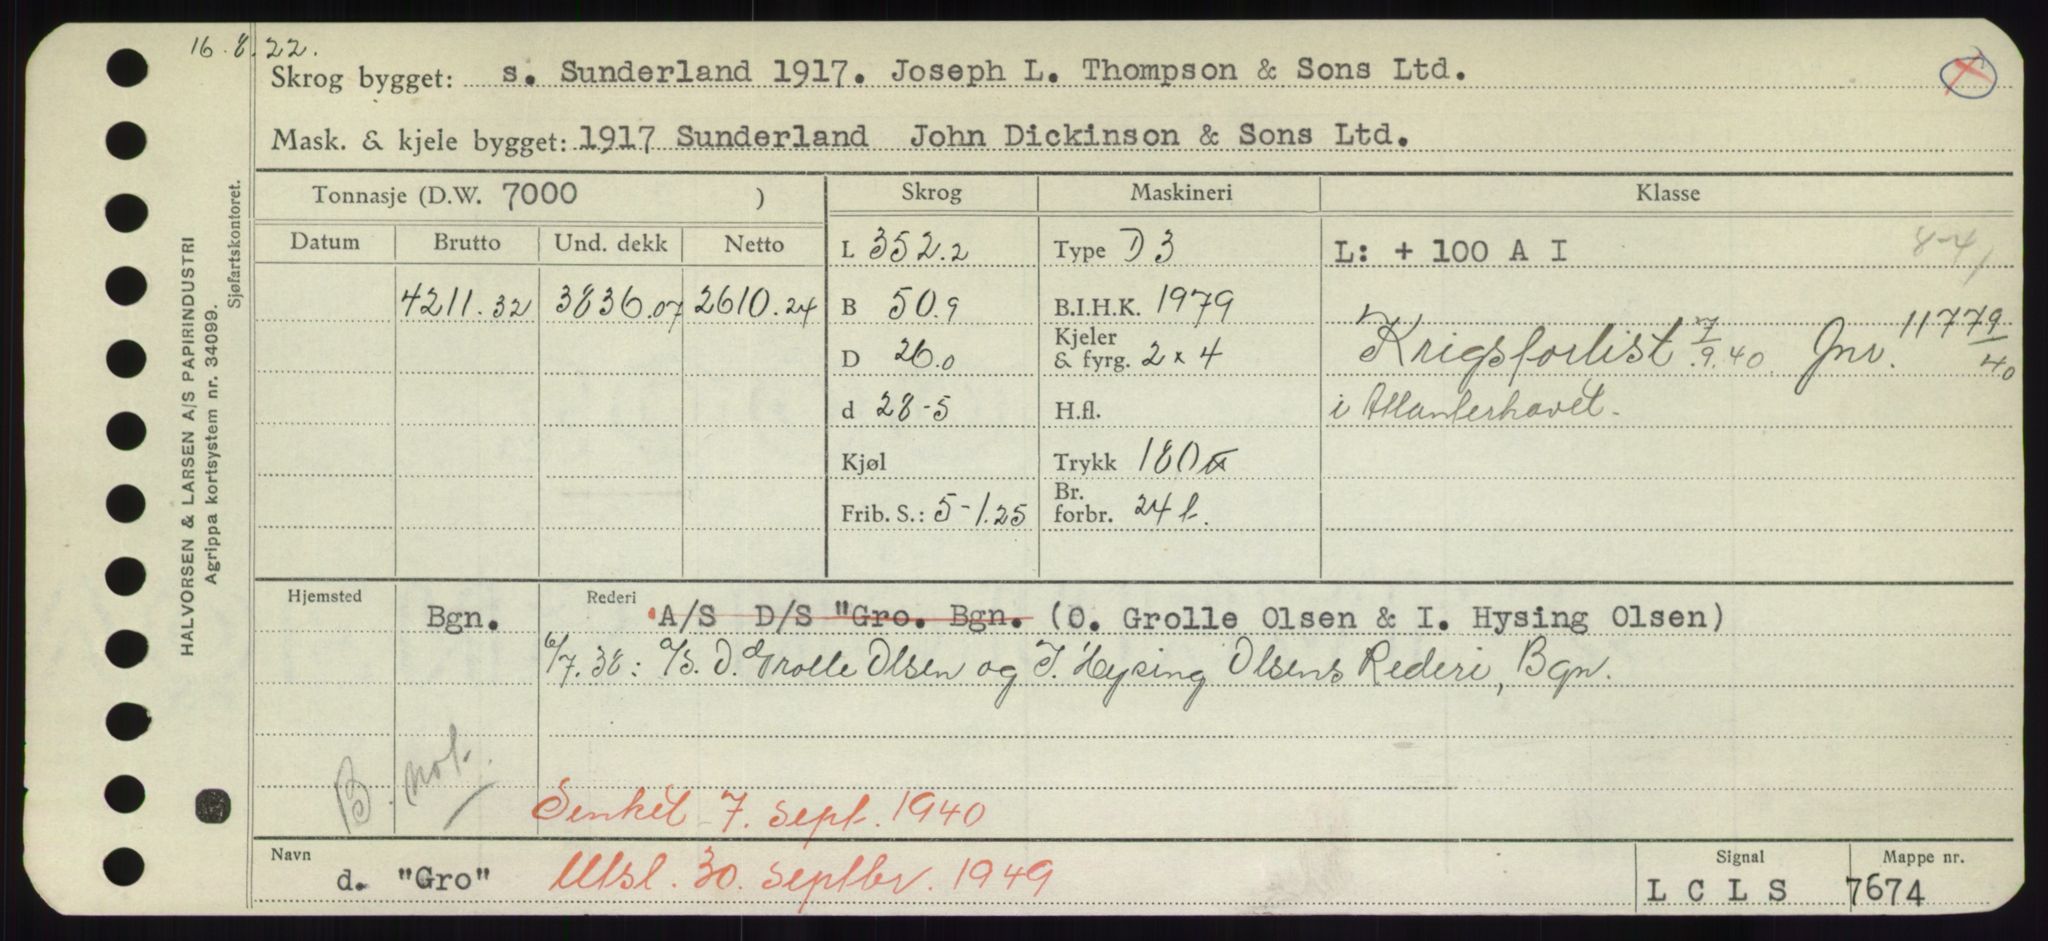 16.8.22.
Skrog bygget: s. Sunderland 1917. Joseph L. Thompson & Sons Ltd.
Mask. & kjele bygget: 1917 Sunderland John Dickinson & Sons Ltd.
Tonnasje (D.W. 7000 ) Skrog Maskineri Klasse
Datum Brutto Und. dekk Netto L 352.2 Type D 3 L: + 100 A I 8-41
4211.32 3836.07 2610.24 B 50.9 B.I.H.K. 1979
D 26.0 Kjeler & fyrg. 2 x 4 Krigsforlist 7/9.40 Jnr. 11779/40
d 28-5 H.fl. i Atlanterhavet.
Kjøl Trykk 180
Frib. S.: 5-1.25 Br. forbr. 24 t.
Hjemsted Bgn. Rederi A/S D/S "Gro. Bgn. (O. Grolle Olsen & I. Hysing Olsen)
6/7.38: A/S. O. Grolle Olsen og I. Hysing Olsens Rederi, Bgn.
B. not.
Senket 7. sept. 1940
Navn d. "Gro" Utsl. 30. septbr. 1949 Signal L C L S Mappe nr. 7674
HALVORSEN & LARSEN A/S PAPIRINDUSTRI
Agrippa kortsystem nr. 34099.
Sjøfartskontoret.